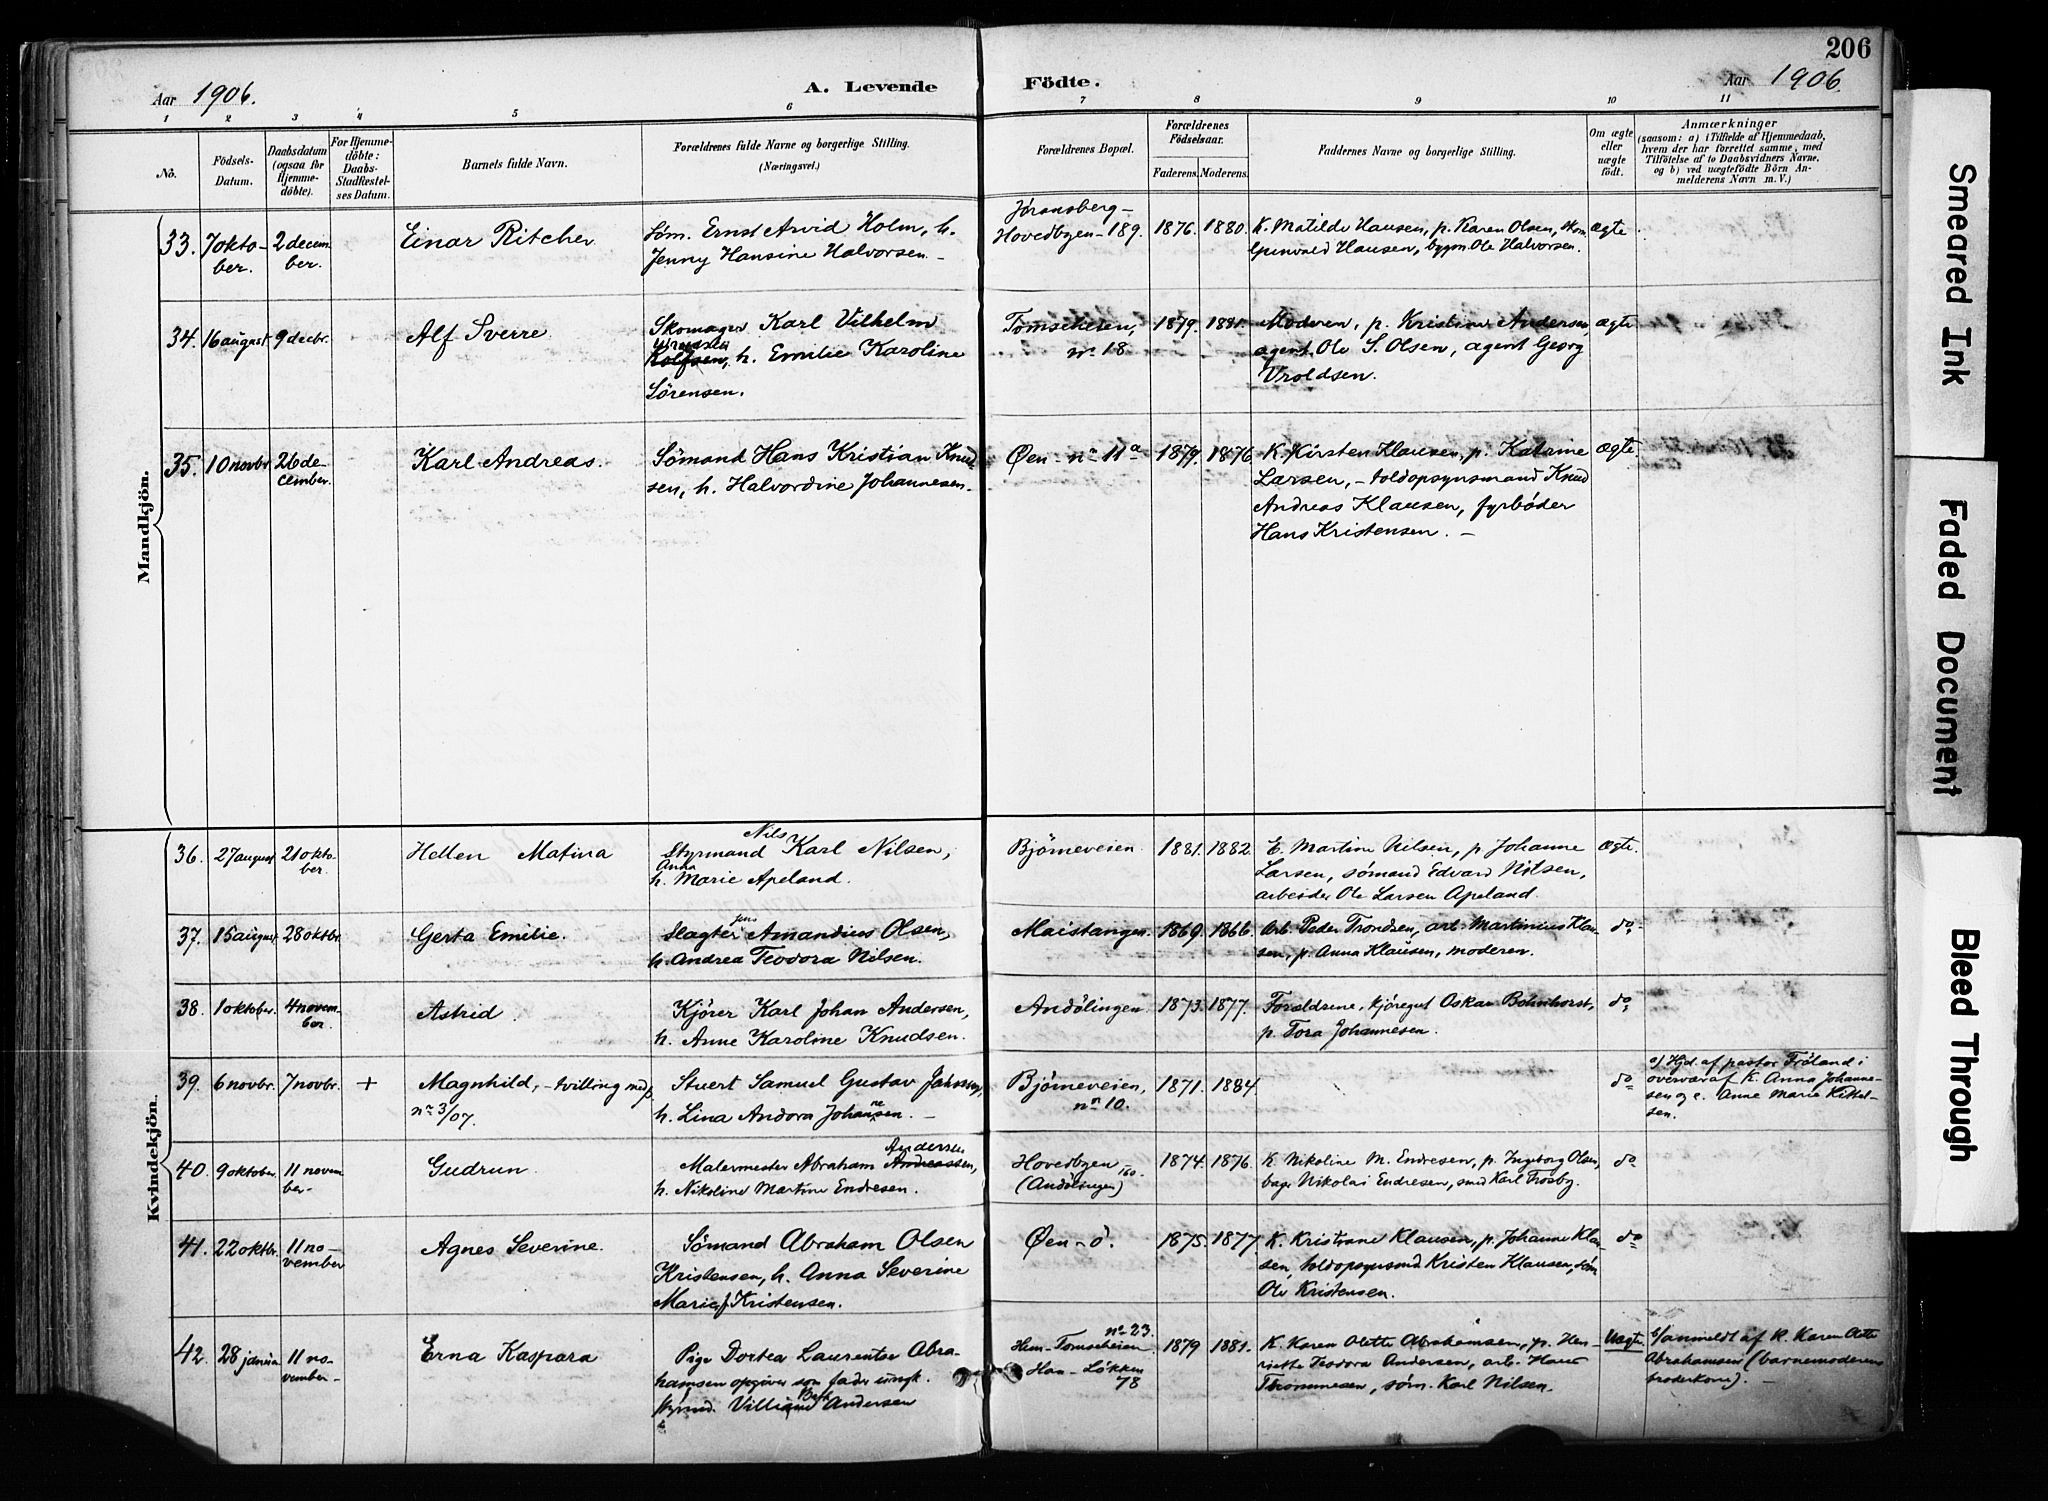 206
Aar 1906.
A. Levende
Födte.
Aar 1906.
1 2 3 4 5 6 7 8 9 10 11
No.
Födsels-Datum.
Daabsdatum (ogsaa for Hjemmedöbte).
For Hjemmedöbte: Daabs-Stadfæstelses Datum.
Barnets fulde Navn.
Forældrenes fulde Navne og borgerlige Stilling. (Næringsvei.)
Forældrenes Bopæl.
Forældrenes Födselsaar.
Faderens. Moderens.
Faddernes Navne og borgerlige Stilling.
Om ægte eller uægte födt.
Anmærkninger
(saasom: a) i Tilfælde af Hjemmedaab,
hvem der har forrettet samme, med
Tilföielse af to Daabsvidners Navne,
og b) ved uægtefödte Börn An-
melderens Navn m. V.)
Mandkjön.
33. 7 okto-ber. 2 decem-ber. Einar Ritcher
Söm. Ernst Arvid Holm, h.
Jenny Hansine Halvorsen -
Jöransberg-
Hovedbyen - 189. 1876. 1880.
K. Matilde Hansen, p. Karen Olsen, skom.
Gunvald Hansen, bygm. Ole Halvorsen.
ægte
34. 16 august 9 decbr. Alf Sverre
Skomager Karl Vilhelm
Rolfsen, h. Emilie Karoline
Sörensen.
Tomseheien,
nr 18 1879. 1881.
Moderen, p. Kristine Andersen,
agent Ole S. Olsen, agent Georg
Vroldsen.
ægte
35. 10 novbr. 26 de-cember. Karl Andreas.
Sömand Hans Kristian Knud-
sen, h. Halvordine Johannesen.
Øen - nr 11a 1879. 1876
K. Kirsten Klausen, p. Katrine
Larsen, - toldopsynsmand Knud
Andreas Klausen, fyrbøder
Hans Kristensen. -
ægte
Kvindekjön.
36. 27 august 21 okto-ber. Hellen Matina
Nils
Styrmand Karl Nilsen,
Anna
h. Marie Apeland.
Bjørneveien. 1881. 1882.
E. Martine Nilsen, p. Johanne
Larsen, sømand Edvard Nilsen,
arbeider Ole Larsen Apeland.
ægte.
37. 15 august 28 oktbr. Gerta Emilie.
Jens
Slagter Amandius Olsen,
h. Andrea Teodora Nilsen.
Maistangen 1869. 1866.
Arb. Peder Trondsen, arb. Martinius Klau-
sen, p. Anna Klausen, moderen.
do
38. 1 oktober. 4 novem-ber. Astrid
Kjörer Karl Johan Andersen,
h. Anne Karoline Knudsen.
Andölingen. 1873. 1877.
Forældrene, kjøregut Oskar Bohnhorst,
p. Tora Johannesen.
do
39. 6 novbr. 7 novbr. + Magnhild, - tvilling med p.
nr 3/07.
Stuert Samuel Gustav Johnsen,
h. Lina Andora Johannesen. -
Bjørneveien,
nr 10. 1871. 1884.
do
a) Hjd. af pastor Fröland i
overvær af K. Anna Johanne-
sen og e. Anne Marie Kittel-
sen.
40. 9 oktober. 11 novem-ber- Gudrun.
Andersen
Malermester Abraham Andreassen,
h. Nikoline Martine Endresen.
Hovedbyen 160.
(Andölingen) 1874. 1876.
K. Nikoline M. Endresen, p. Ingeborg Olsen,
bager Nikolai Endresen, smed Karl Trosby.
do
41. 22 oktbr. 11 no-vember Agnes Severine.
Sömand Abraham Olsen
Kristensen, h. Anna Severine
Marie Kristensen.
Øen - ö. 1875. 1877
K. Kristiane Klausen, p. Johanne Klau-
sen, toldopsynsmd Kristen Klausen, søm.
Ole Kristensen.
do
42. 28 januar 11 no-vember- Erna Kaspara
Pige Dortea Laurentse Abra-
hamsen opgiver som fader ungk.
styrmd. Villiam Andersen
nr 23.
Hun - Tomseheien
Han - Løkken
78 1879 1881.
K. Karen Olette Abrahamsen, p. Hen-
riette Teodora Andersen, arb. Hans
Thommesen, søm. Karl Nilsen.
Uægte
b) anmeldt af K. Karen Olette
Abrahamsen (barnemoderens
broderkone). -
Smeared Ink
Faded Document
Bleed Through